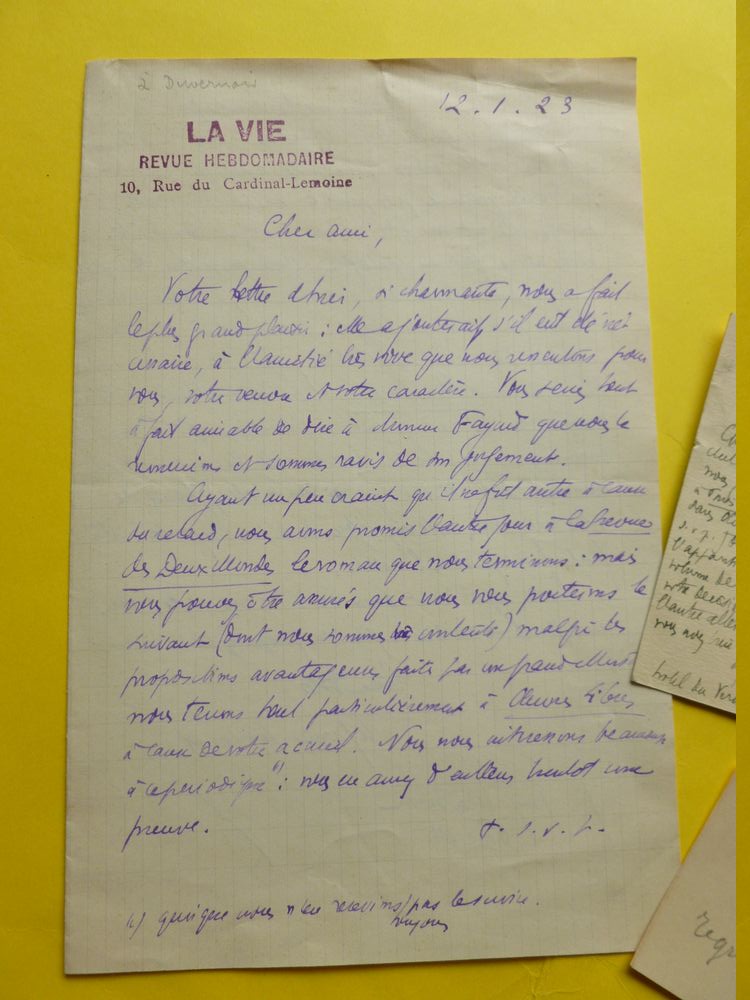 à Duvernois
12.1.23
LA VIE
REVUE HEBDOMADAIRE
10, Rue du Cardinal-Lemoine
Cher ami,
Votre lettre si charmante, nous a fait
le plus grand plaisir : elle ajouterait, s'il eut été néc
essaire, à l'amitié très vive que nous ressentons pour
vous, votre et votre caractère. Vous serez tout
à fait aimable de dire à Fayard que nous le
remercions et sommes ravis de son jugement.
Ayant un peu craint qu'il ne fut autre à cause
du retard, nous avons promis l'autre jour à la Revue
des Deux Mondes le roman que nous terminons : mais
vous pouvez être assurés que nous vous porterons le
suivant (dont nous sommes contents) malgré les
propositions avantageuses faites par un grand
nous tenons tout particulièrement à Œuvres Libres
à cause de votre accueil. Nous nous intéressons beaucoup
à ce périodique 1) : vous en aurez d'ailleurs bientôt une
preuve.
1) quoique nous n'en recevions pas le service.
toujours
hotel du